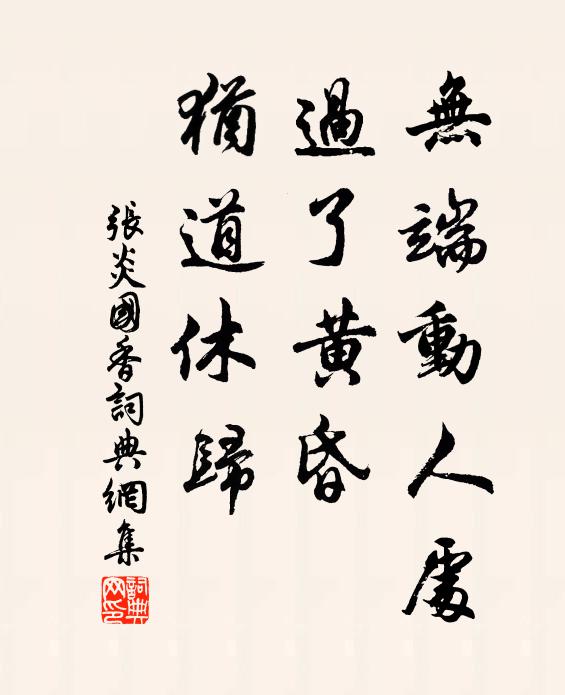 無端動人處
過了黄昏
猶道休歸
張炎國香詞典網集
詞典网印